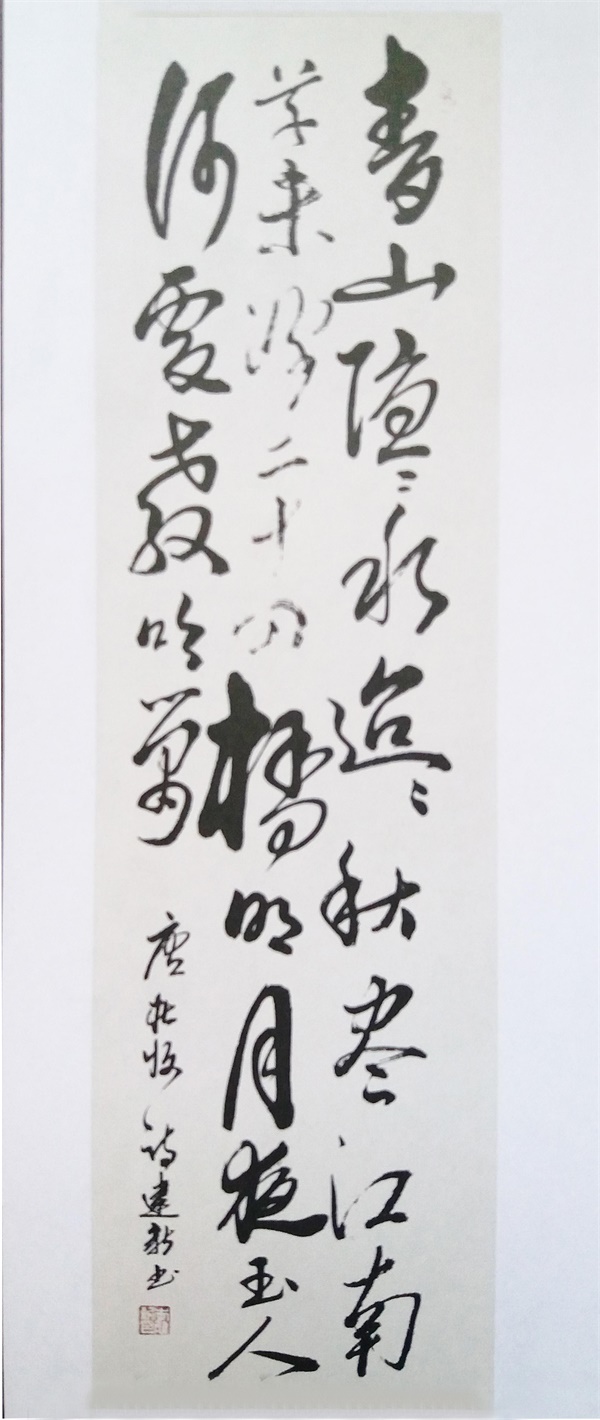 青山隱〻水迢〻秋尽江南
草未凋二十四橋明月夜玉人
何處教吹簫
唐杜牧詩建新书